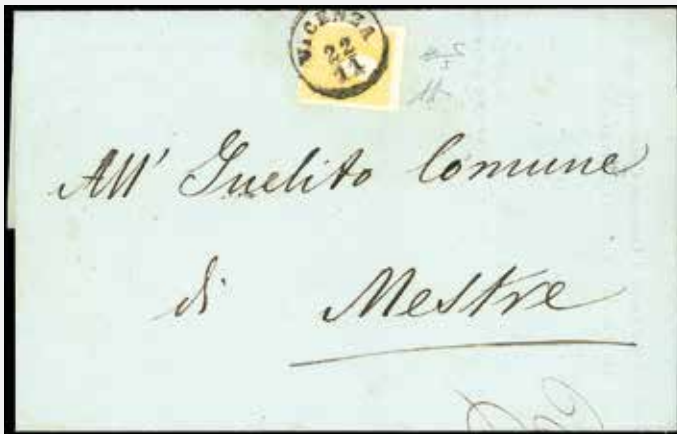 VICENZA
22
11
All' Inclito Comune
di Mestre